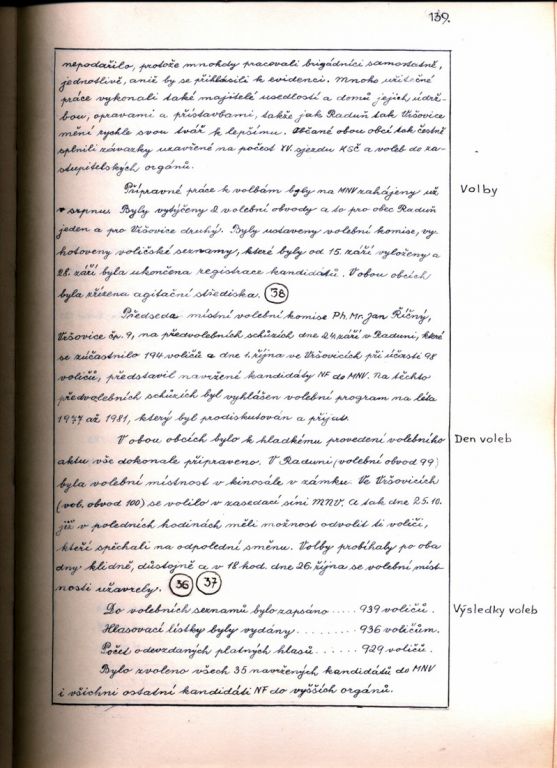 139.
nepodařilo, protože mnohdy pracovali brigádníci samostatně,
jednotlivě, aniž by se přihlásili k evidenci. Mnoho užitečné
práce vykonali také majitelé usedlostí a domů jejich údrž-
bou, opravami a přístavbami, takže jak Raduň tak Vršovice
mění rychle svou tvář k lepšímu. Občané obou obcí tak čestně
splnili závazky uzavřené na počest XV. sjezdu KSČ a voleb do za-
stupitelských orgánů.
Přípravné práce k volbám byly na MNV zahájeny už
Volby
v srpnu. Byly vytýčeny 2 volební obvody a to pro obec Raduň
jeden a pro Vršovice druhý. Byly ustaveny volební komise, vy-
hotoveny voličské seznamy, které byly od 15. září vyloženy a
28. září byla ukončena registrace kandidátů. V obou obcích
byla zřízena agitační střediska. 38
Předseda místní volební komise Ph. Mr. Jan Říčný,
Vršovice čp. 9, na předvolebních schůzích dne 24. září v Raduni, které
se zúčastnilo 194 voličů a dne 1. října ve Vršovicích při účasti 98
voličů, představil navržené kandidáty NF do MNV. Na těchto
předvolebních schůzích byl vyhlášen volební program na léta
1977 až 1981, který byl prodiskutován a přijat.
V obou obcích bylo k hladkému provedení volebního
Den voleb
aktu vše dokonale připraveno. V Raduni (volební obvod 99)
byla volební místnost v kinosále v zámku. Ve Vršovicích
(vol. obvod 100) se volilo v zasedací síni MNV. A tak dne 25.10.
již v poledních hodinách měli možnost odvolit ti voliči,
kteří spěchali na odpolední směnu. Volby probíhaly po oba
dny klidně, důstojně a v 18 hod. dne 26. října se volební míst-
nosti uzavřely. 36 37
Do volebních seznamů bylo zapsáno ..... 939 voličů.
Výsledky voleb
Hlasovací lístky byly vydány ......... 936 voličům.
Počet odevzdaných platných hlasů ...... 929 voličů.
Bylo zvoleno všech 35 navržených kandidátů do MNV
i všichni ostatní kandidáti NF do vyšších orgánů.